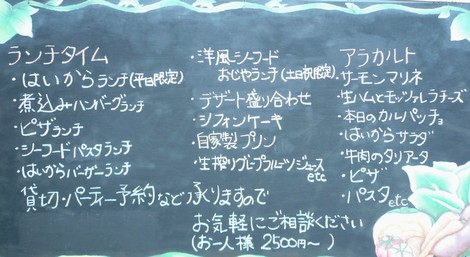 ランチタイム
・はいからランチ(平日限定)
・煮込みハンバーグランチ
・ピザランチ
・シーフードパスタランチ
・はいからバーガーランチ
・洋風シーフード
おじやランチ(土日祝限定)
・デザート盛り合わせ
・シフォンケーキ
・自家製プリン
・生搾りグレープフルーツジュース
etc
アラカルト
・サーモンマリネ
・生ハムとモッツァレラチーズ
・本日のカルパッチョ
・はいからサラダ
・牛肉のタリアータ
・ピザ
・パスタetc
貸切・パーティー予約など承りますので
お気軽にご相談ください
(お一人様 2500円〜)